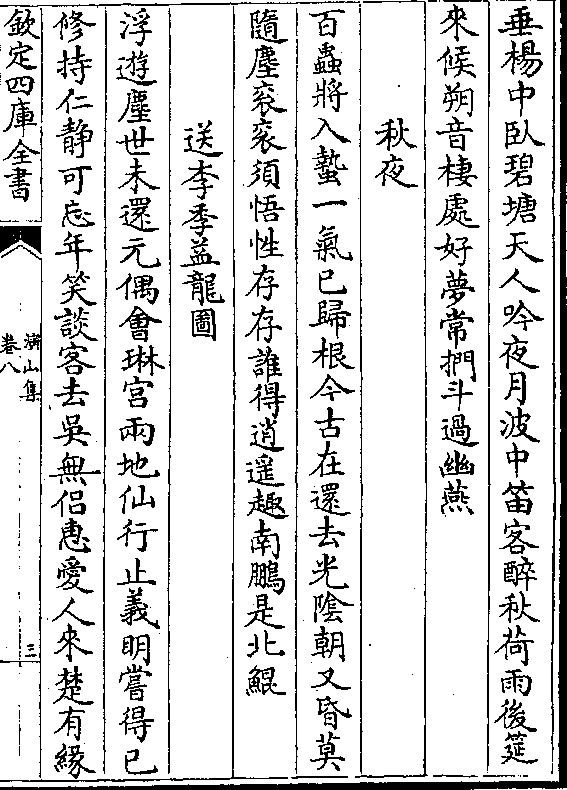 垂楊中臥碧塘天人吟夜月波中笛客醉秋荷雨後筵
來候朔音棲處好夢常捫斗過幽燕
秋夜
百蟲將入蟄一氣已歸根今古在還去光陰朝又昏莫
隨塵衮衮須悟性存存誰得逍遥趣南鵬是北鯤
送李季益龍圖
浮遊塵世未還元偶會琳宮兩地仙行止義明嘗得已
修持仁静可忘年笑談客去吳無侣惠愛人來楚有緣
欽定四庫全書
灊山集
卷八
三